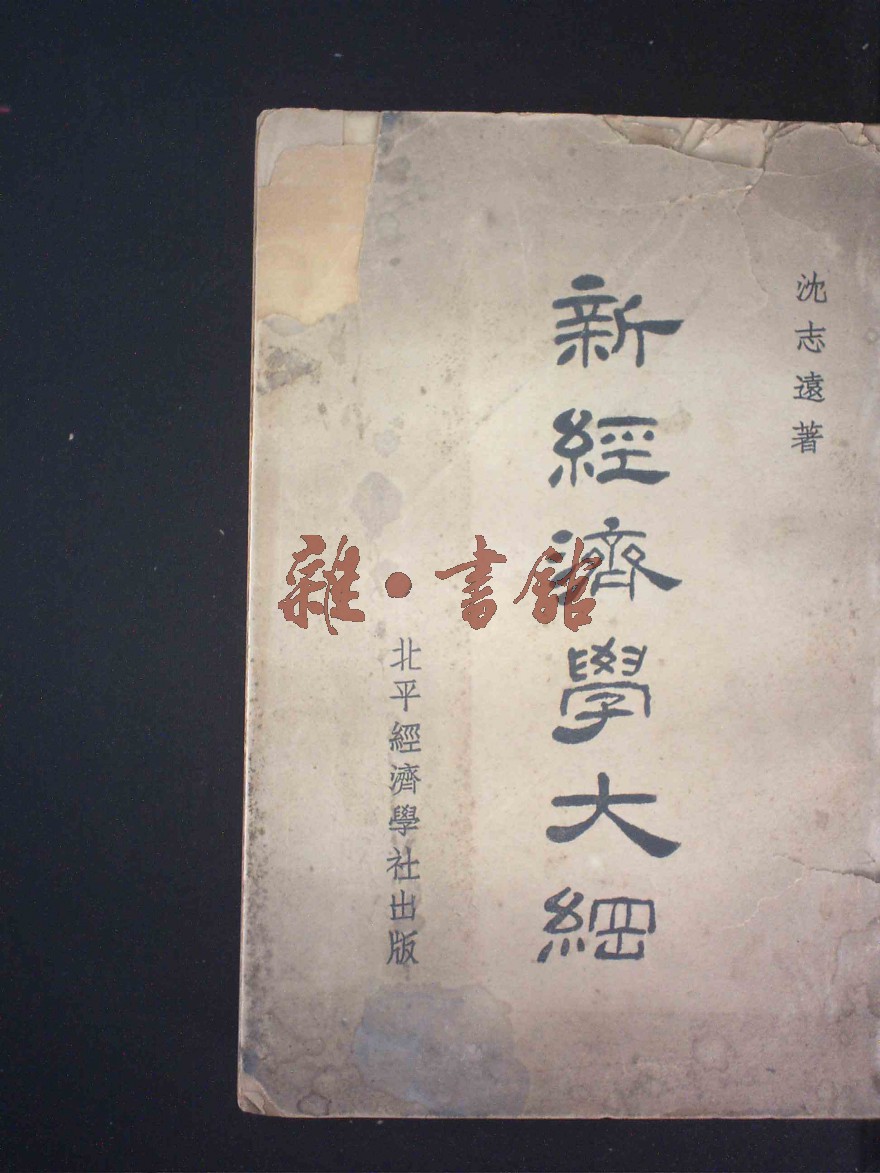 沈志遠著
新經濟學大綱
北平經濟學社出版
雜•書館